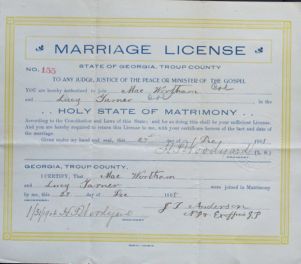 MARRIAGE LICENSE
STATE OF GEORGIA, TROUP COUNTY
No. 155
TO ANY JUDGE, JUSTICE OF THE PEACE OR MINISTER OF THE GOSPEL
YOU are hereby authorized to join Mac Wortham Col
and Lucy Turner Col in the
HOLY STATE OF MATRIMONY
According to the Constitution and Laws of this State: and for so doing this shall be your sufficient License.
And you are hereby required to return this License to me, with your certificate hereon of the fact and date
of the marriage.
Given under my hand and seal, this 25 day Dec 190
H. T. Woodyard (L. S.)
GEORGIA, TROUP COUNTY.
I CERTIFY, That Mac Wortham
and Lucy Turner were joined in Matrimony
by me, this 25 day of Dec 190
H. T. Woodyard J T Anderson
N.P. & Exofficio J.P.